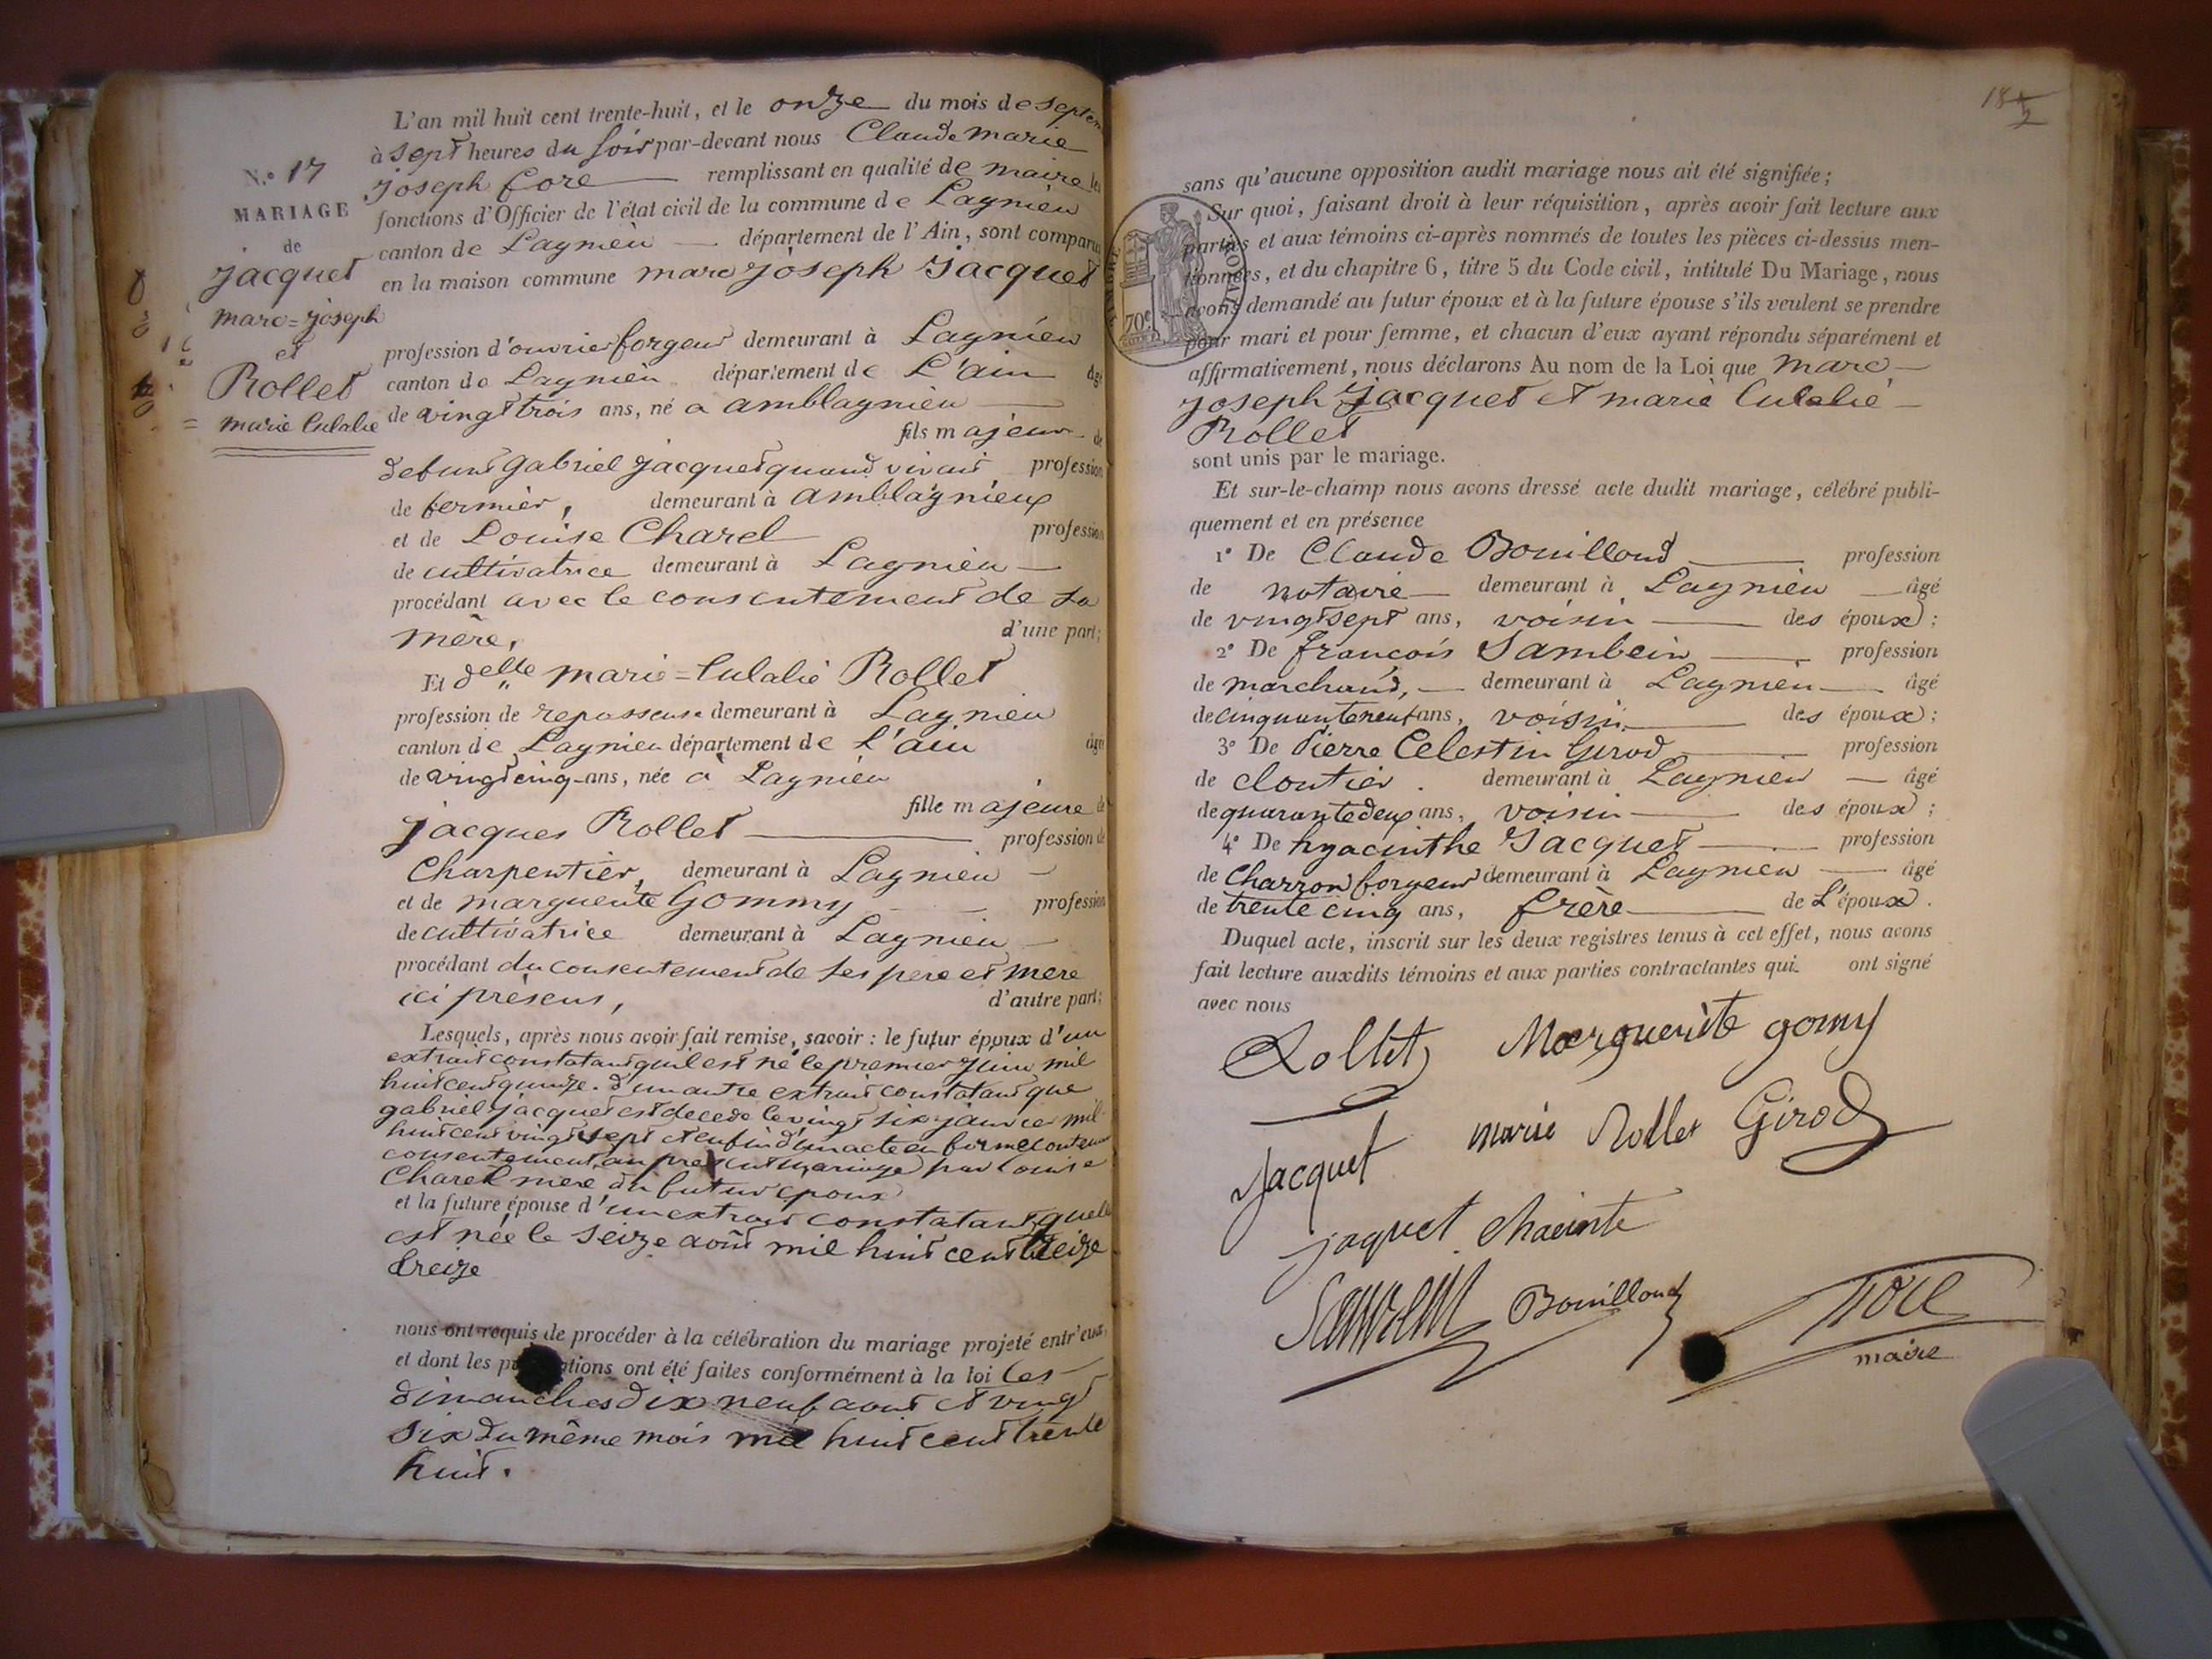 L'an mil huit cent trente-huit, et le onze du mois de septem
à sept heures du soir par-devant nous Claude Marie
N.º 17
joseph fore remplissant en qualité de maire les
MARIAGE
fonctions d'Officier de l'état civil de la commune de Lagnieu
de
canton de Lagnieu département de l'Ain, sont comparus
jacquet
en la maison commune marc joseph Jacquet
marc=joseph
et
profession d'ouvrier forgeur demeurant à Lagnieu
Rollet
canton de Lagnieu département de L'ain âgé
marie Eulalie
de vingt trois ans, né a amblagnieu
fils majeur de
defunt Gabriel jacquet quand vivait profession
de fermier, demeurant à amblagnieux
et de Louise Charel profession
de cultivatrice demeurant à Lagnieu
procédant avec le consentement de sa
mère, d'une part;
Et delle marie=Eulalie Rollet
profession de repasseuse demeurant à Lagnieu
canton de Lagnieu département de L'ain âgée
de vingt cinq ans, née à Lagnieu
fille majeure de
jacques Rollet profession de
Charpentier, demeurant à Lagnieu
et de marguerite Gommy profession
de cultivatrice demeurant à Lagnieu
procédant du consentement de ses pere et mere
ici présens, d'autre part;
Lesquels, après nous avoir fait remise, savoir: le futur époux d'un
extrait constatant quil est né le premier juin mil
huit cent quinze. d'un autre extrait constatant que
gabriel jacquet est decede le vingt six janvier mil
huit cent vingt sept et enfin d'un acte en forme contenant
consentement au present mariage par Louise
Charel mere du futur epoux
et la future épouse d'un extrait constatant quelle
est née le seize août mil huit cent treize
treize
nous ont requis de procéder à la célébration du mariage projeté entr'eux,
et dont les publications ont été faites conformément à la loi les
dimanches dix neuf aout et vingt
six du même mois mil huit cent trente
huit.
18
2
sans qu'aucune opposition audit mariage nous ait été signifiée;
Sur quoi, faisant droit à leur réquisition, après avoir fait lecture aux
parties et aux témoins ci-après nommés de toutes les pièces ci-dessus men-
tionnées, et du chapitre 6, titre 5 du Code civil, intitulé Du Mariage, nous
avons demandé au futur époux et à la future épouse s'ils veulent se prendre
pour mari et pour femme, et chacun d'eux ayant répondu séparément et
affirmativement, nous déclarons Au nom de la Loi que marc
joseph Jacquet et marie Eulalie
Rollet
sont unis par le mariage.
TIMBRE ROYAL
70c
Et sur-le-champ nous avons dressé acte dudit mariage, célébré publi-
quement et en présence
1º De Claude Bouilloud profession
de notaire demeurant à Lagnieu âgé
de vingt sept ans, voisin des époux;
2º De françois Sambein profession
de marchand, demeurant à Lagnieu âgé
de cinquante neuf ans, voisin des époux;
3º De Pierre Celestin Girod profession
de cloutier. demeurant à Lagnieu âgé
de quarante deux ans, voisin des époux;
4º De hyacinthe Jacquet profession
de Charron forgeur demeurant à Lagnieu âgé
de trente cinq ans, frère de L'époux.
Duquel acte, inscrit sur les deux registres tenus à cet effet, nous avons
fait lecture auxdits témoins et aux parties contractantes qui ont signé
avec nous
Rollet Marguerite gomy
Jacquet marie Rollet Girod
jaquet chacinte
Bouilloud fore
maire